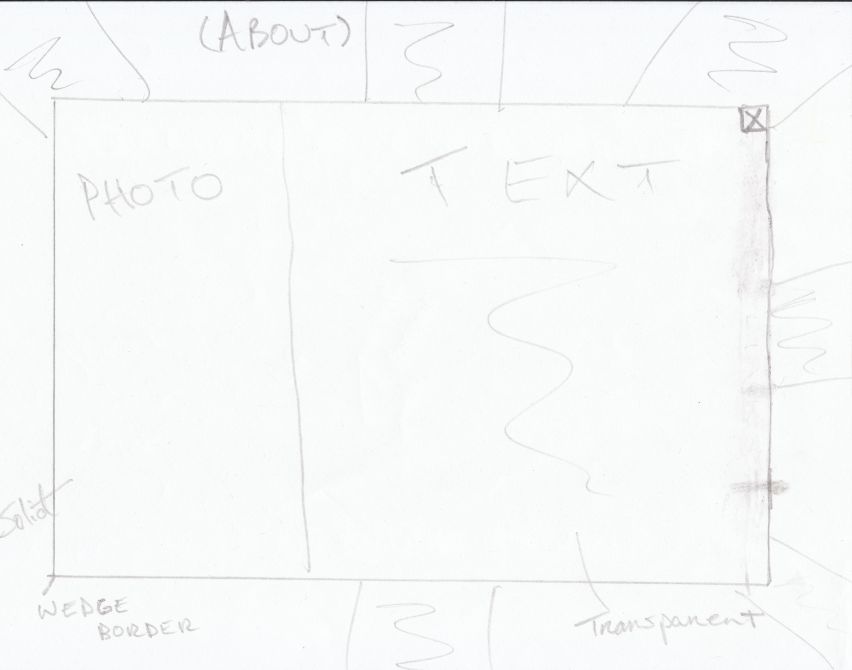 (ABOUT)
X
PHOTO
TEXT
Solid
WEDGE
BORDER
Transparent